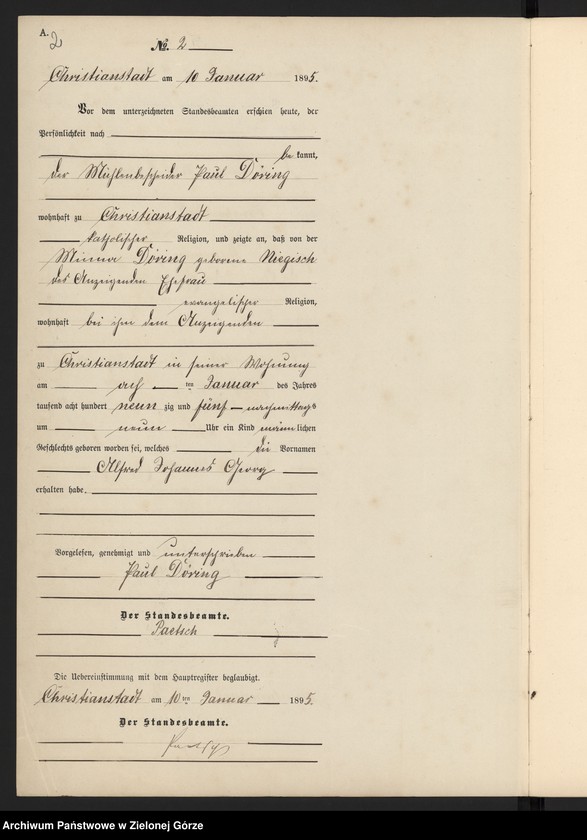 A.
2
No. 2
Christianstadt am 10 Januar 1895.
Vor dem unterzeichneten Standesbeamten erschien heute, der
Persönlichkeit nach
be kannt,
der Mühlenbescheider Paul Döring
wohnhaft zu Christianstadt
katholischer Religion, und zeigte an, daß von der
Minna Döring geborene Niegisch
des Anzeigenden Ehefrau
evangelischer Religion,
wohnhaft bei ihm dem Anzeigenden
zu Christianstadt in seiner Wohnung
am acht ten Januar des Jahres
tausend acht hundert neun zig und fünf nachmittags
um neun Uhr ein Kind männlichen
Geschlechts geboren worden sei, welches die Vornamen
Alfred Johannes Georg
erhalten habe.
Vorgelesen, genehmigt und unterschrieben
Paul Döring
Der Standesbeamte.
Paetsch
Die Uebereinstimmung mit dem Hauptregister beglaubigt.
Christianstadt am 10ten Januar 1895.
Der Standesbeamte.
Paetsch
Archiwum Państwowe w Zielonej Górze